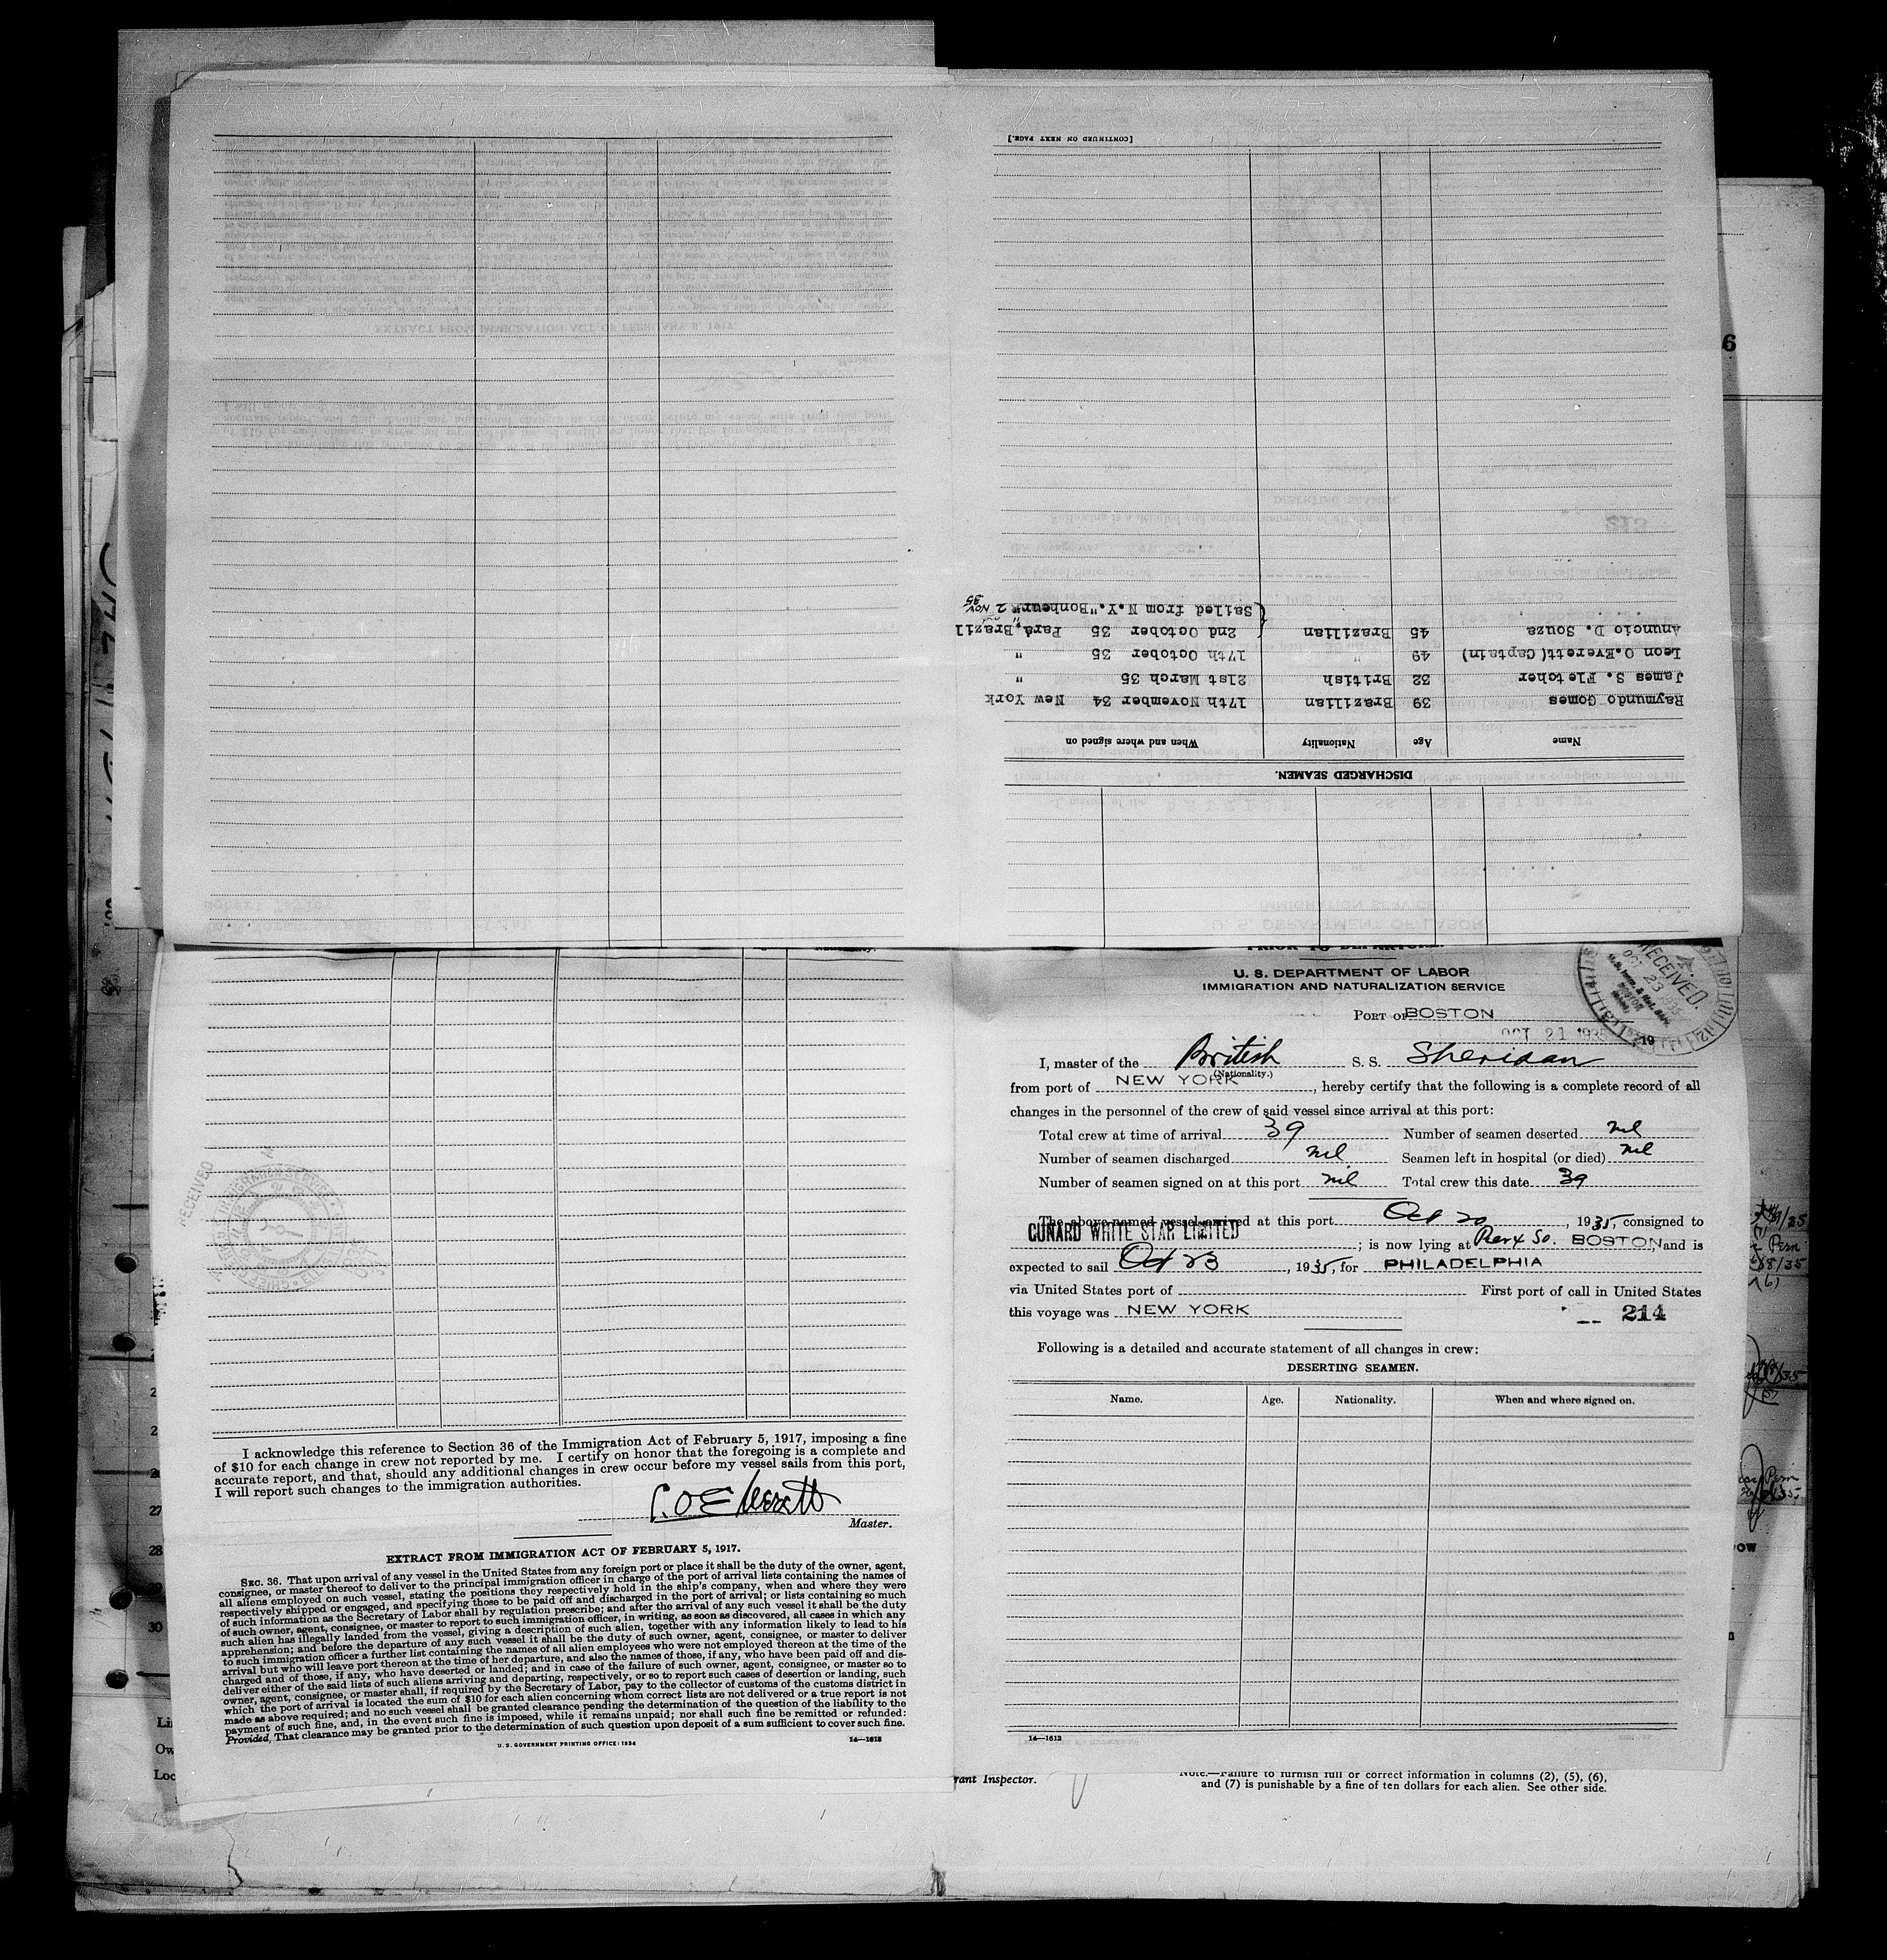 [CONTINUED ON NEXT PAGE.]
DISCHARGED SEAMEN.
Name Age Nationality When and where signed on
Raymundo Gomes 39 Brazilian 17th November 34 New York
James S. Fletcher 32 British 21st March 35 "
Leon O.Everett(Captain) 49 " 17th October 35 "
Anuncio D. Souza 45 Brazilian 2nd October 35 Para, Brazil
Sailed from N.Y."Bonheur" 2 NOV 35
U. S. DEPARTMENT OF LABOR
IMMIGRATION AND NATURALIZATION SERVICE
RECEIVED
OCT 23 1935
PORT OF BOSTON
OCT 21 1935, 19
I, master of the British S. S. Sheridan
(Nationality.)
from port of NEW YORK, hereby certify that the following is a complete record of all
changes in the personnel of the crew of said vessel since arrival at this port:
Total crew at time of arrival 39 Number of seamen deserted nil
Number of seamen discharged nil Seamen left in hospital (or died) nil
Number of seamen signed on at this port nil Total crew this date 39
The above-named vessel arrived at this port Oct 20, 1935, consigned to
CUNARD WHITE STAR LIMITED; is now lying at Pier 4 So. BOSTON, and is
expected to sail Oct 23, 1935, for PHILADELPHIA
via United States port of First port of call in United States
this voyage was NEW YORK
214
Following is a detailed and accurate statement of all changes in crew:
DESERTING SEAMEN.
Name. Age. Nationality. When and where signed on.
14—1612
I acknowledge this reference to Section 36 of the Immigration Act of February 5, 1917, imposing a fine
of $10 for each change in crew not reported by me. I certify on honor that the foregoing is a complete and
accurate report, and that, should any additional changes in crew occur before my vessel sails from this port,
I will report such changes to the immigration authorities.
L.O Everett
Master.
EXTRACT FROM IMMIGRATION ACT OF FEBRUARY 5, 1917.
SEC. 36. That upon arrival of any vessel in the United States from any foreign port or place it shall be the duty of the owner, agent,
consignee, or master thereof to deliver to the principal immigration officer in charge of the port of arrival lists containing the names of
all aliens employed on such vessel, stating the positions they respectively hold in the ship's company, when and where they were
respectively shipped or engaged, and specifying those to be paid off and discharged in the port of arrival; or lists containing so much
of such information as the Secretary of Labor shall by regulation prescribe; and after the arrival of any such vessel it shall be the duty
of such owner, agent, consignee, or master to report to such immigration officer, in writing, as soon as discovered, all cases in which any
such alien has illegally landed from the vessel, giving a description of such alien, together with any information likely to lead to his
apprehension; and before the departure of any such vessel it shall be the duty of such owner, agent, consignee, or master to deliver
to such immigration officer a further list containing the names of all alien employees who were not employed thereon at the time of the
arrival but who will leave port thereon at the time of her departure, and also the names of those, if any, who have been paid off and dis-
charged and of those, if any, who have deserted or landed; and in case of the failure of such owner, agent, consignee, or master so to
deliver either of the said lists of such aliens arriving and departing, respectively, or so to report such cases of desertion or landing, such
owner, agent, consignee, or master shall, if required by the Secretary of Labor, pay to the collector of customs of the customs district in
which the port of arrival is located the sum of $10 for each alien concerning whom correct lists are not delivered or a true report is not
made as above required; and no such vessel shall be granted clearance pending the determination of the question of the liability to the
payment of such fine, and, in the event such fine is imposed, while it remains unpaid; nor shall such fine be remitted or refunded:
Provided, That clearance may be granted prior to the determination of such question upon deposit of a sum sufficient to cover such fine.
U. S. GOVERNMENT PRINTING OFFICE: 1934 14—1612
27
28
30
rant Inspector.
NOTE.—Failure to furnish full or correct information in columns (2), (5), (6),
and (7) is punishable by a fine of ten dollars for each alien. See other side.